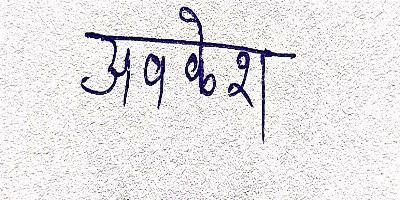 अवकेश